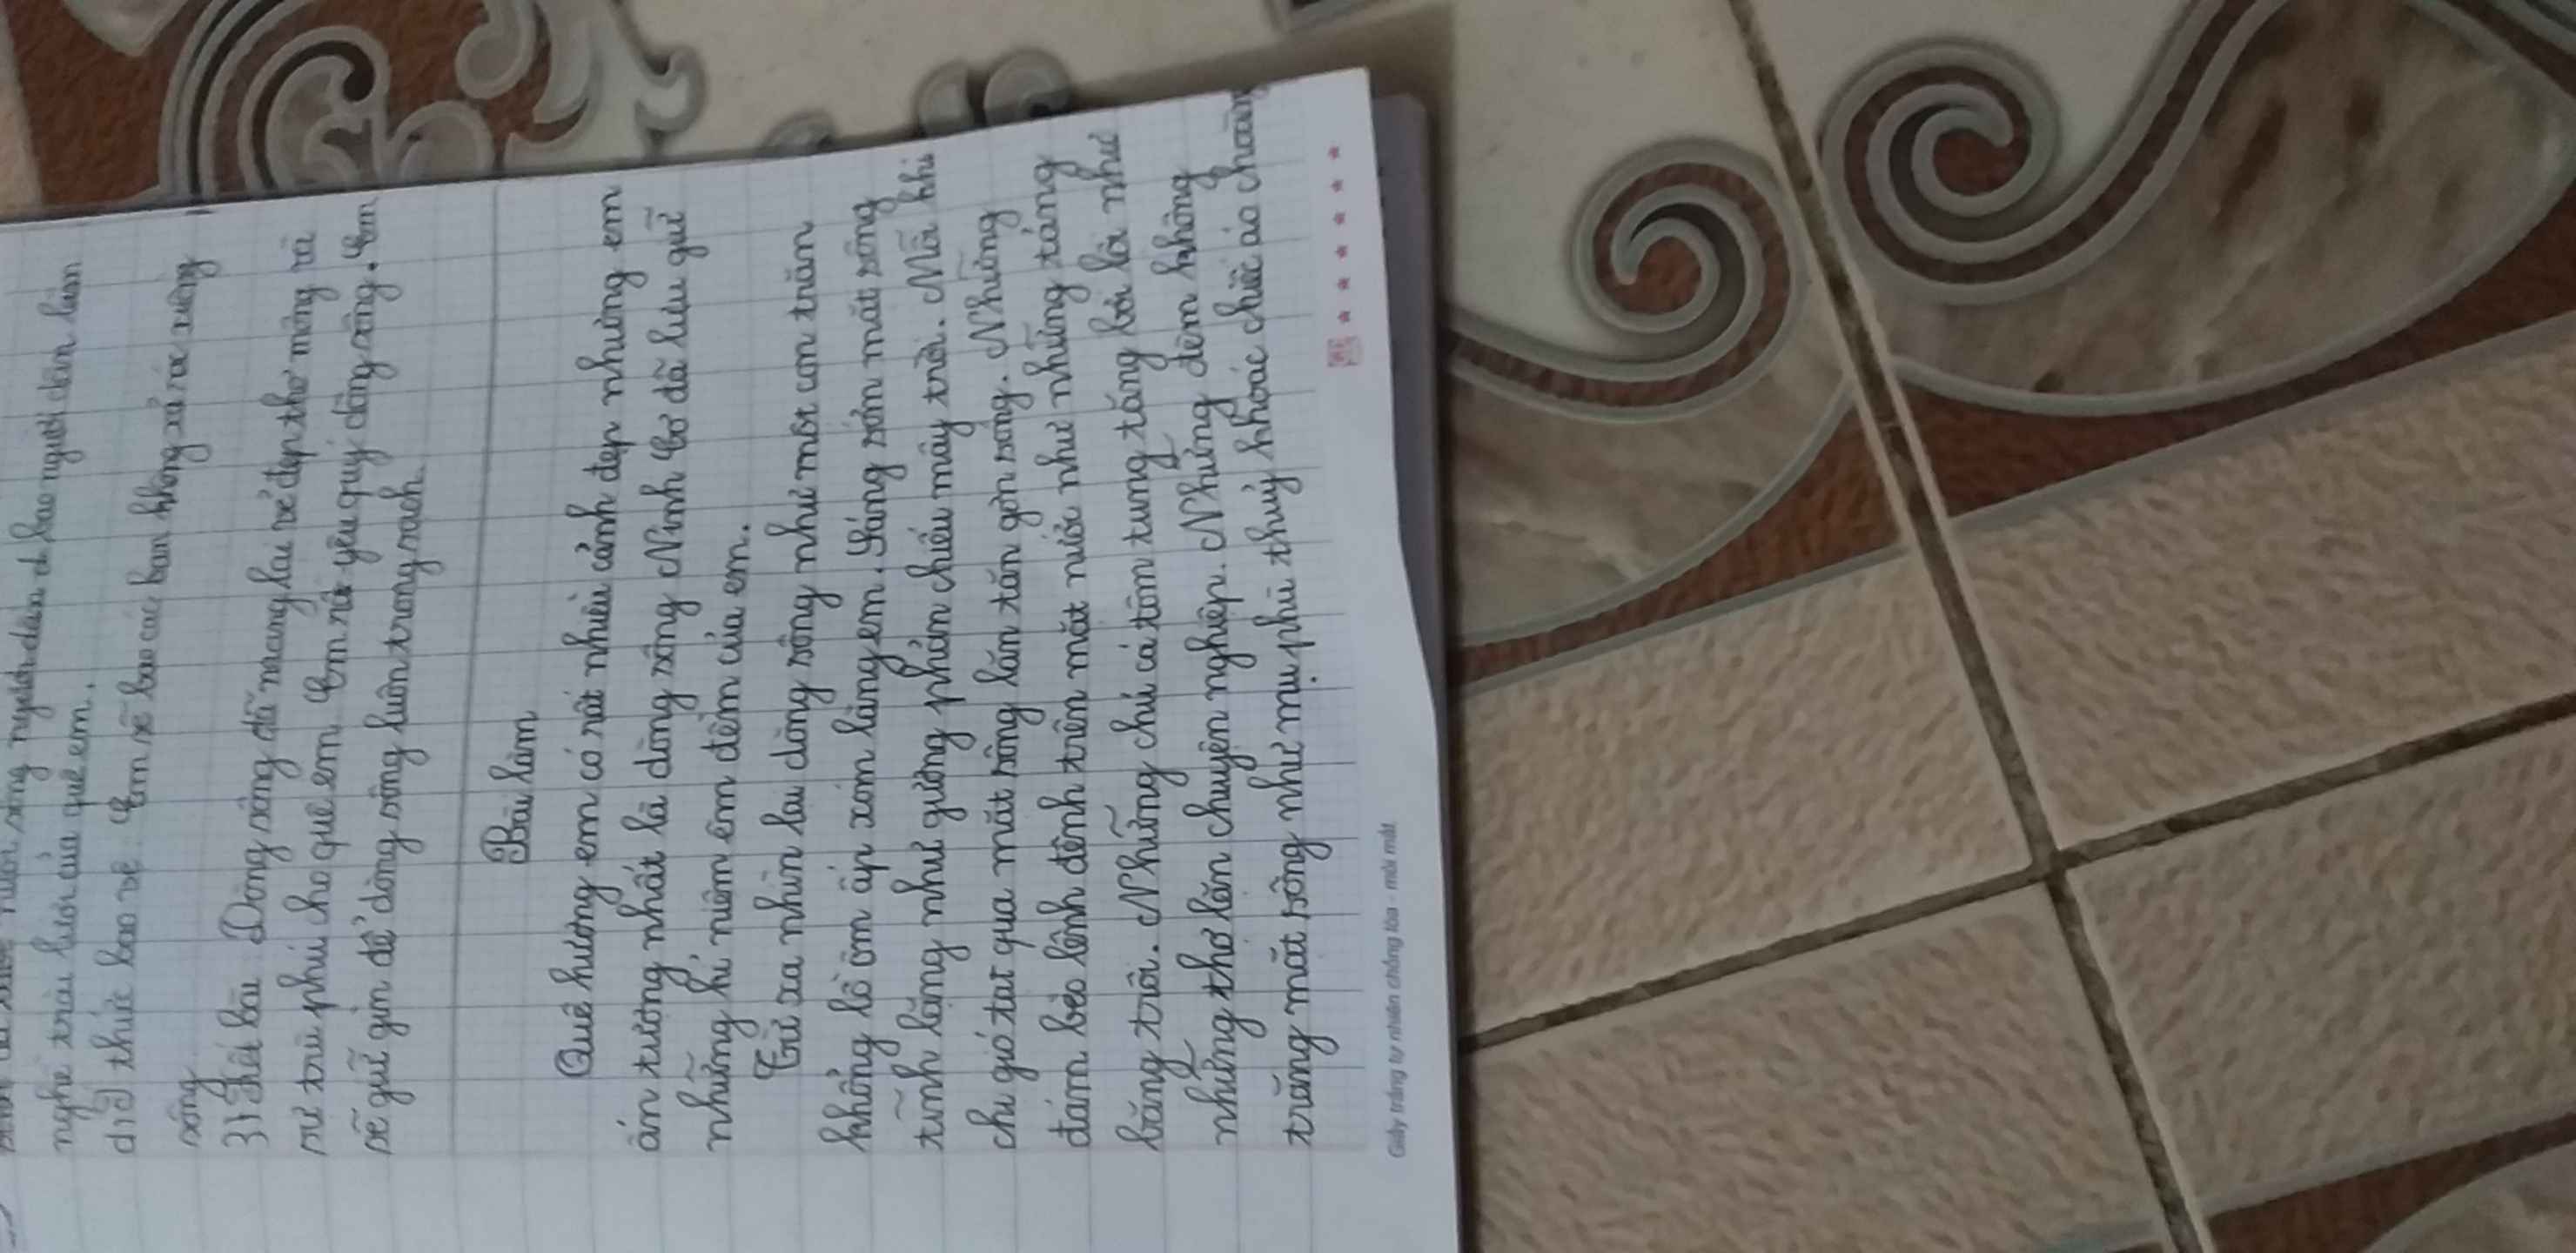 nghề trài lưới của quê em.
d, ý thức bảo vệ. Em sẽ bảo các bạn không xả rác xuống
sông
3, Kết bài Dòng sông đã mang lại vẻ đẹp thơ mộng và
sự trù phú cho quê em. Em rất yêu quý dòng sông. Em
sẽ giữ gìn để dòng sông luôn trong sạch.
Bài làm
Quê hương em có rất nhiều cảnh đẹp nhưng em
ấn tượng nhất là dòng sông Ninh Cơ đã lưu giữ
những kỉ niệm êm đềm của em.
Từ xa nhìn lại dòng sông như một con trăn
khổng lồ ôm ấp xóm làng em. Sáng sớm mặt sông
tĩnh lặng như gương phản chiếu mây trời. Mỗi khi
chị gió tạt qua mặt sông lăn tăn gợn sóng. Những
đám bèo lênh đênh trên mặt nước như những tảng
băng trôi. Những chú cá tôm tung tăng bơi lội như
những thợ lặn chuyên nghiệp. Những đêm không
trăng mặt sông như mụ phù thuỷ khoác chiếc áo choàng
Giấy trắng tự nhiên chống lóa - mỏi mắt